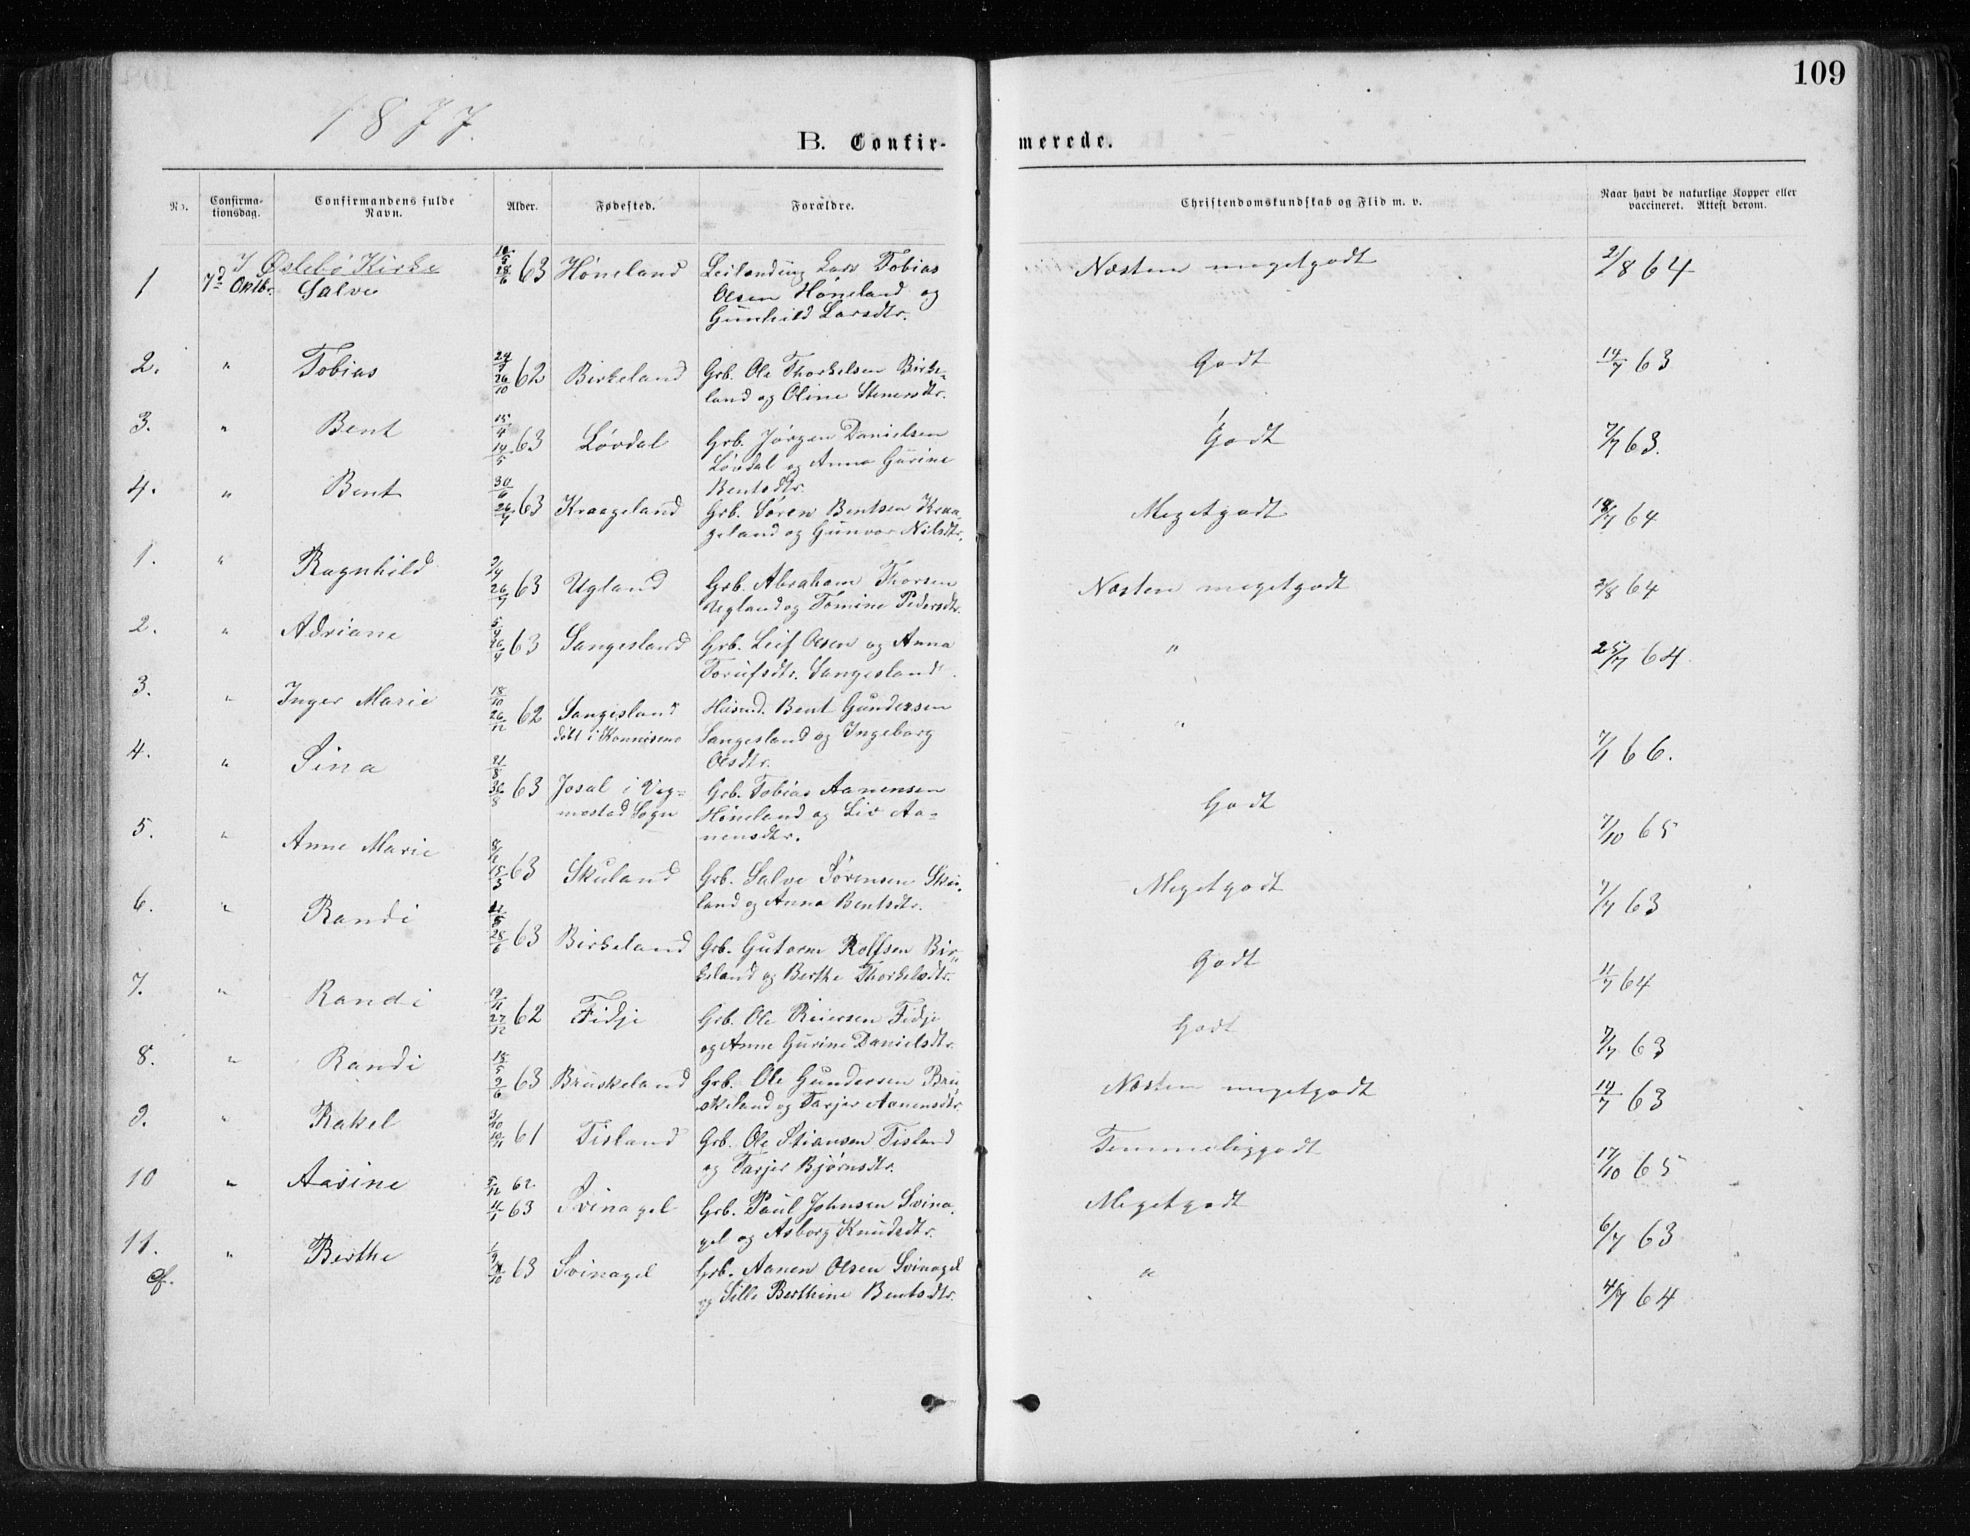 109
1877.
B. Confir-
merede.
No.
Confirma-
tionsdag.
Confirmandens fulde
Navn.
Alder.
Fødested.
Forældre.
Christendomskundskab og Flid m. v.
Naar havt de naturlige Kopper eller
vaccineret. Attest derom.
I Øslebø Kirke
1 7de Oktbr. Salve 28/6 63 Høneland Leilending Lars Tobias
Olsen Høneland og
Gunhild Larsdtr.
Næsten megetgodt 2/8 64
2. " Tobias 26/10 62 Birkeland Grb. Ole Thorkelsen Birke-
land og Oline Stenersdtr.
Godt 14/7 63
3. " Bent 15/4 14/5 63 Løvdal Grb. Jørgen Danielsen
Løvdal og Anna Gurine
Bentsdtr.
Godt 7/7 63.
4. " Bent 30/6 26/7 63 Kraageland Grb. Søren Bentsen Kraa-
geland og Gunvor Nilsdtr.
Megetgodt 18/7 64
1. " Ragnhild 26/7 63 Ugland Grb. Abraham Thorsen
Ugland og Tomine Pedersdtr.
Næsten megetgodt 2/8 64
2. " Adriane 63 Sangesland Grb. Leif Olsen og Anna
Torufsdtr. Sangesland.
" 25/7 64.
3. " Inger Marie 18/10 26/12 62 Sangesland
døbt i Konnismo
Husmd. Bent Gundersen
Sangesland og Ingeborg
Olsdtr.
" 7/1 66.
4. " Sina 21/8 30/8 63 Josal i Vig-
mostad Sogn
Grb. Tobias Aanensen
Høneland og Liv Aa-
nensdtr.
Godt 7/10 65
5. " Anne Marie 15/3 63 Skuland Grb. Salve Sørensen Sku-
land og Anna Bentsdtr.
Megetgodt 7/7 63
6. " Randi 28/6 63 Birkeland Grb. Gutorm Rolfsen Bir-
keland og Berthe Thorkelsdtr.
Godt 11/7 64
7. " Randi 19/11 27/12 62 Fidje Grb. Ole Reiersen Fidje
og Anne Gurine Danielsdtr.
Godt 7/7 63
8. " Randi 15/5 2/6 63 Bruskeland Grb. Ole Gundersen Bru-
skeland og Tarjer Aanensdtr.
Næsten megetgodt 14/7 63
9. " Rakel 3/10 10/11 61 Tisland Grb. Ole Stiansen Tisland
og Tarjer Bjørnsdtr.
Temmeliggodt 17/10 65
10 " Aasine 5/12 62
63 Svinagel Grb. Paul Johnsen Svina-
gel og Asborg Knudsdtr.
Megetgodt 6/7 63
11. " Berthe 63 Svinagel Grb. Aanen Olsen Svinagel
og Sille Berthine Bentsdtr.
" 4/7 64